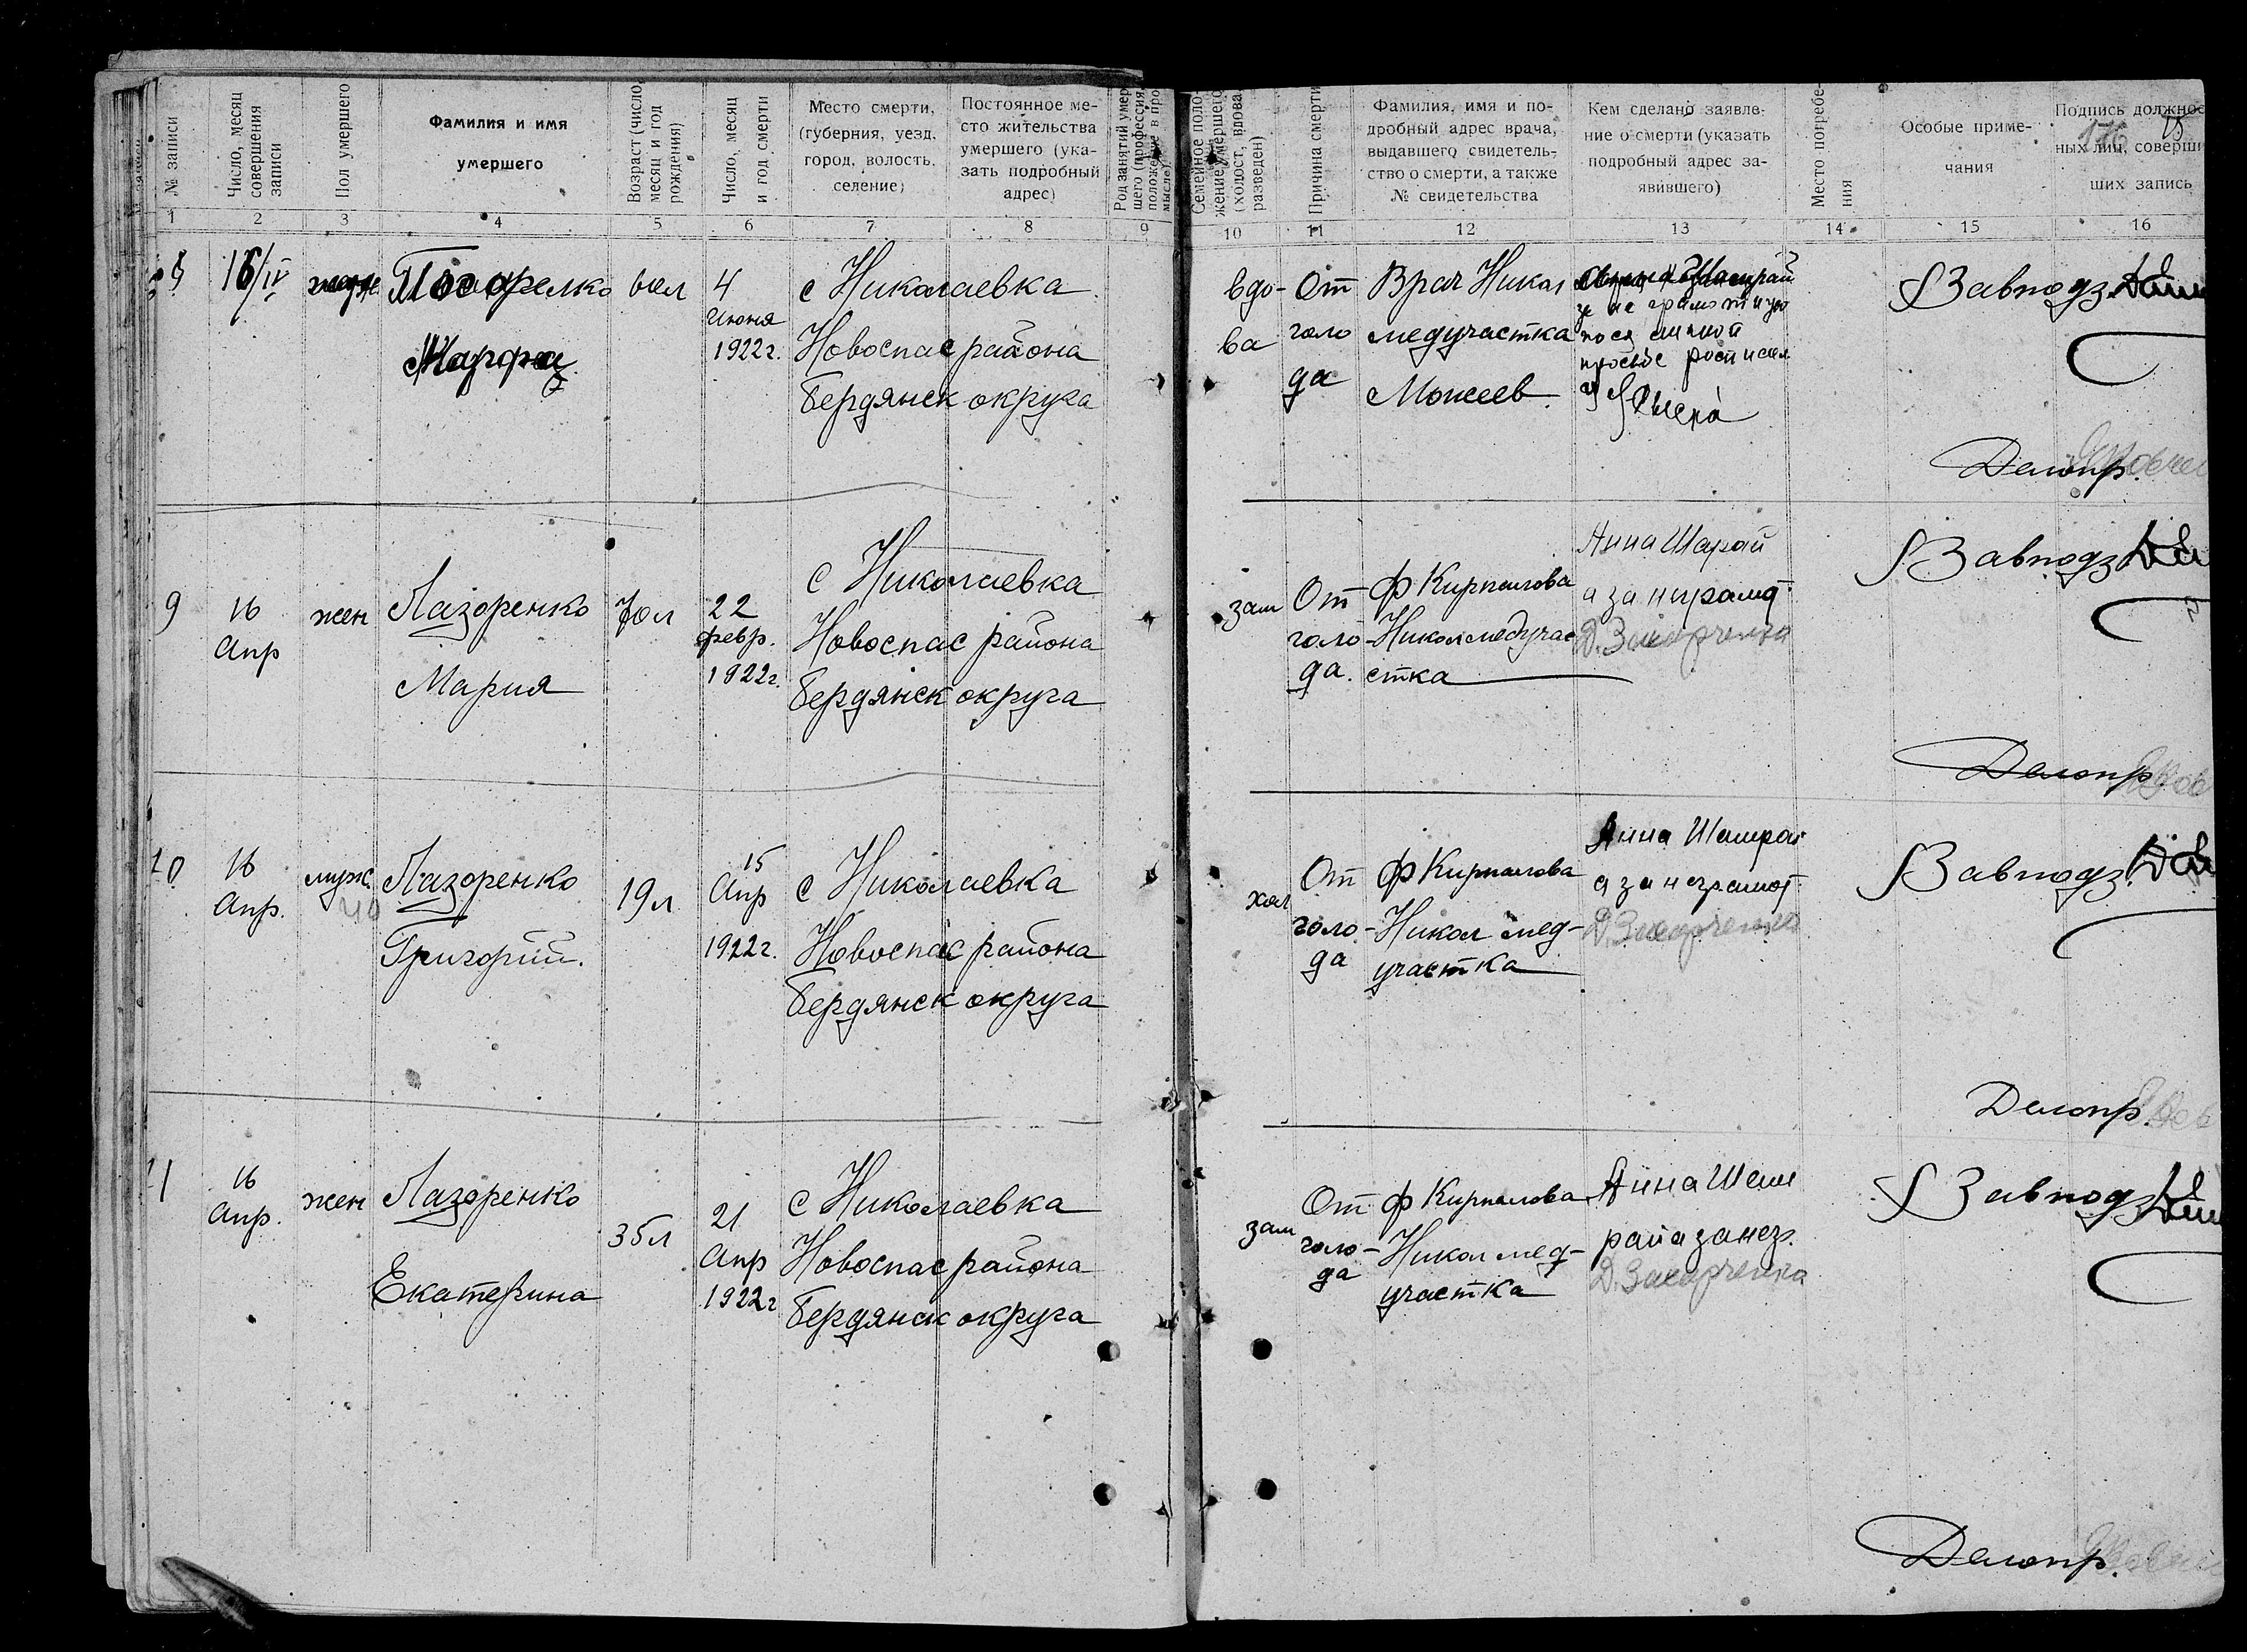 № записи
Число, месяц совершения записи
Пол умершего
Фамилия и имя
умершего
Возраст (число, месяц и год рождения)
Число, месяц и год смерти
Место смерти,
(губерния, уезд,
город, волость,
селение)
Постоянное ме-
сто жительства
умершего (ука-
зать подробный
адрес)
Род занятий умер
шего (профессия,
положение в про
мысле)
Семейное поло-
жение умершего
(холост, вдова,
разведен)
Причина смерти
Фамилия, имя и по-
дробный адрес врача,
выдавшего свидетель-
ство о смерти, а также
№ свидетельства
Кем сделано заявле-
ние о смерти (указать
подробный адрес за-
явившего)
Место погребе-
ния
Особые приме-
чания
Подпись должнос
ных лиц, соверши
ших запись
176
1 2 3 4 5 6 7 8 9 10 11 12 13 14 15 16
16/IV
Марфа
4
июня
1922г.
с Николаевка
Новоспас района
Бердянск округа
вдо-
ва
От
голо
да
Врач Никол
медучастка
Моисеев
Завподз
Делопр.
9
16
Апр
жен
Лазоренко
Мария
70л
22
февр.
1922г.
с Николаевка
Новоспас района
Бердянск округа
зам
От
голо-
да.
ф Кирпалова
Никол медучас
стка
Анна Шарай
а за неграмот
Д. Захарченко
Завподз
Делопр
10
16
Апр.
муж
Лазоренко
Григорий.
19л
15
Апр
1922г.
с Николаевка
Новоспас района
Бердянск округа
хол
От
голо-
да
ф Кирпалова
Никол мед-
участка
Анна Шамрай
а за неграмот
Д. Захарченко
Завподз.
Делопр.
16
Апр.
жен
Лазоренко
Екатерина
35л
21
Апр
1922г
с Николаевка
Новоспас района
Бердянск округа
зам
От
голо-
да
ф Кирпалова
Никол мед-
участка
Анна Шам
рай а за нег.
Д. Захарченко
Завподз
Делопр.